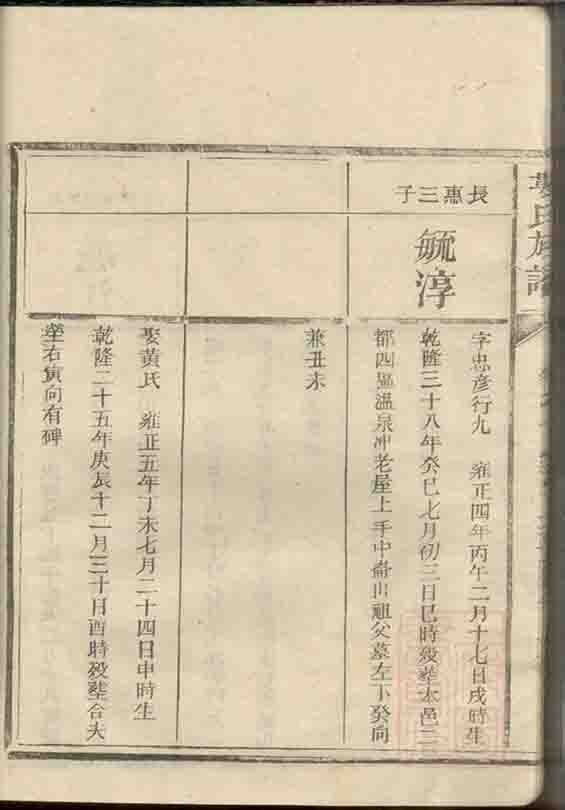 氏族譜
長惠三子
毓淳
字忠彥行九 雍正四年丙午二月十七日戌時生
乾隆三十八年癸巳七月初三日巳時歿塟本邑二
都四區溫泉冲老屋上手中崙山祖父墓左下癸向
兼丑未
娶黃氏 雍正五年丁未七月二十四日申時生
乾隆二十五年庚辰十二月三十日酉時歿塟合夫
塋右寅向有碑